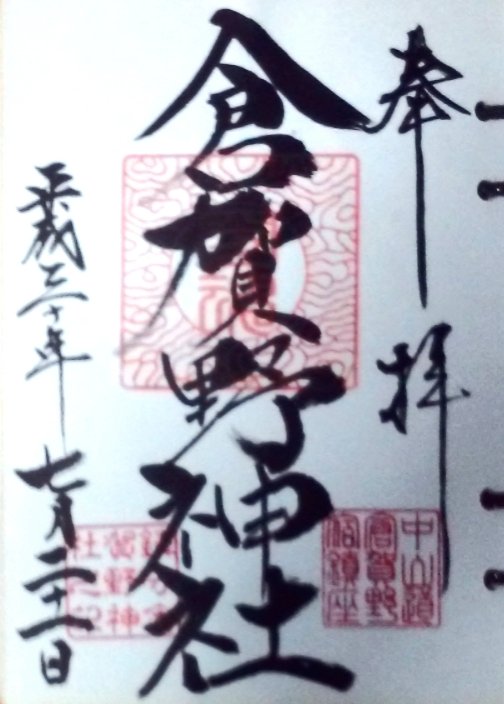 奉拝
倉賀野神社
平成三十年
七月二十一日
中山道
倉賀野
宿鎮座